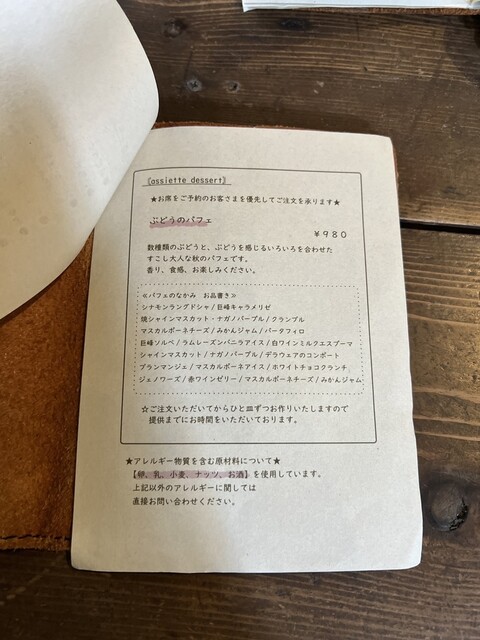 《assiette dessert》
★お席をご予約のお客さまを優先してご注文を承ります★
ぶどうのパフェ
￥980
数種類のぶどうと、ぶどうを感じるいろいろを合わせた
すこし大人な秋のパフェです。
香り、食感、お楽しみください。
≪パフェのなかみ お品書き≫
シナモンラングドシャ/巨峰キャラメリゼ
焼シャインマスカット・ナガノパープル/クランブル
マスカルポーネチーズ/みかんジャム/パータフィロ
巨峰ソルベ/ラムレーズンバニラアイス/白ワインミルクエスプーマ
シャインマスカット/ナガノパープル/デラウェアのコンポート
ブランマンジェ/マスカルポーネアイス/ホワイトチョコクランチ
ジェノワーズ/赤ワインゼリー/マスカルポーネチーズ/みかんジャム
☆ご注文いただいてからひと皿ずつお作りいたしますので
提供までにお時間をいただいております。
★アレルギー物質を含む原材料について★
【卵、乳、小麦、ナッツ、お酒】を使用しています。
上記以外のアレルギーに関しては
直接お問い合わせください。